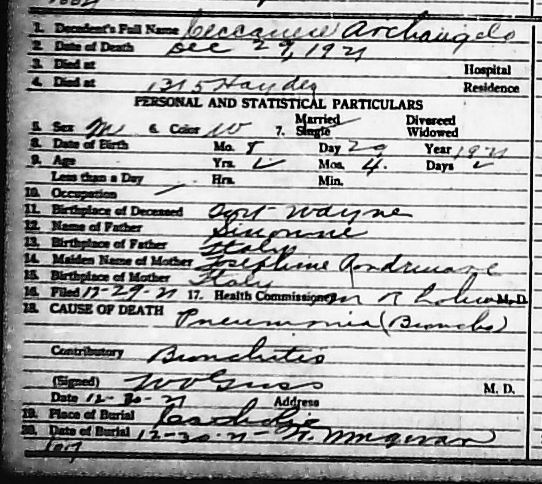 1. Decedent's Full Name Archangelo
2. Date of Death Dec 29, 1921
3. Died at Hospital
4. Died at 1315 Hayden Residence
PERSONAL AND STATISTICAL PARTICULARS
5. Sex M 6. Color W 7. Married Single Divorced Widowed
8. Date of Birth Mo. 8 Day 29 Year 1921
9. Age Yrs. Mos. 4. Days
Less than a Day Hrs. Min.
10. Occupation
11. Birthplace of Deceased Fort Wayne
12. Name of Father
13. Birthplace of Father Italy
14. Maiden Name of Mother Josephine
15. Birthplace of Mother Italy
16. Filed 12-29-21 17. Health Commissioner M. D.
18. CAUSE OF DEATH Pneumonia (Broncho)
Contributory Bronchitis
(Signed) M. D.
Date 12-30-21 Address
19. Place of Burial Catholic
20. Date of Burial 12-30-21